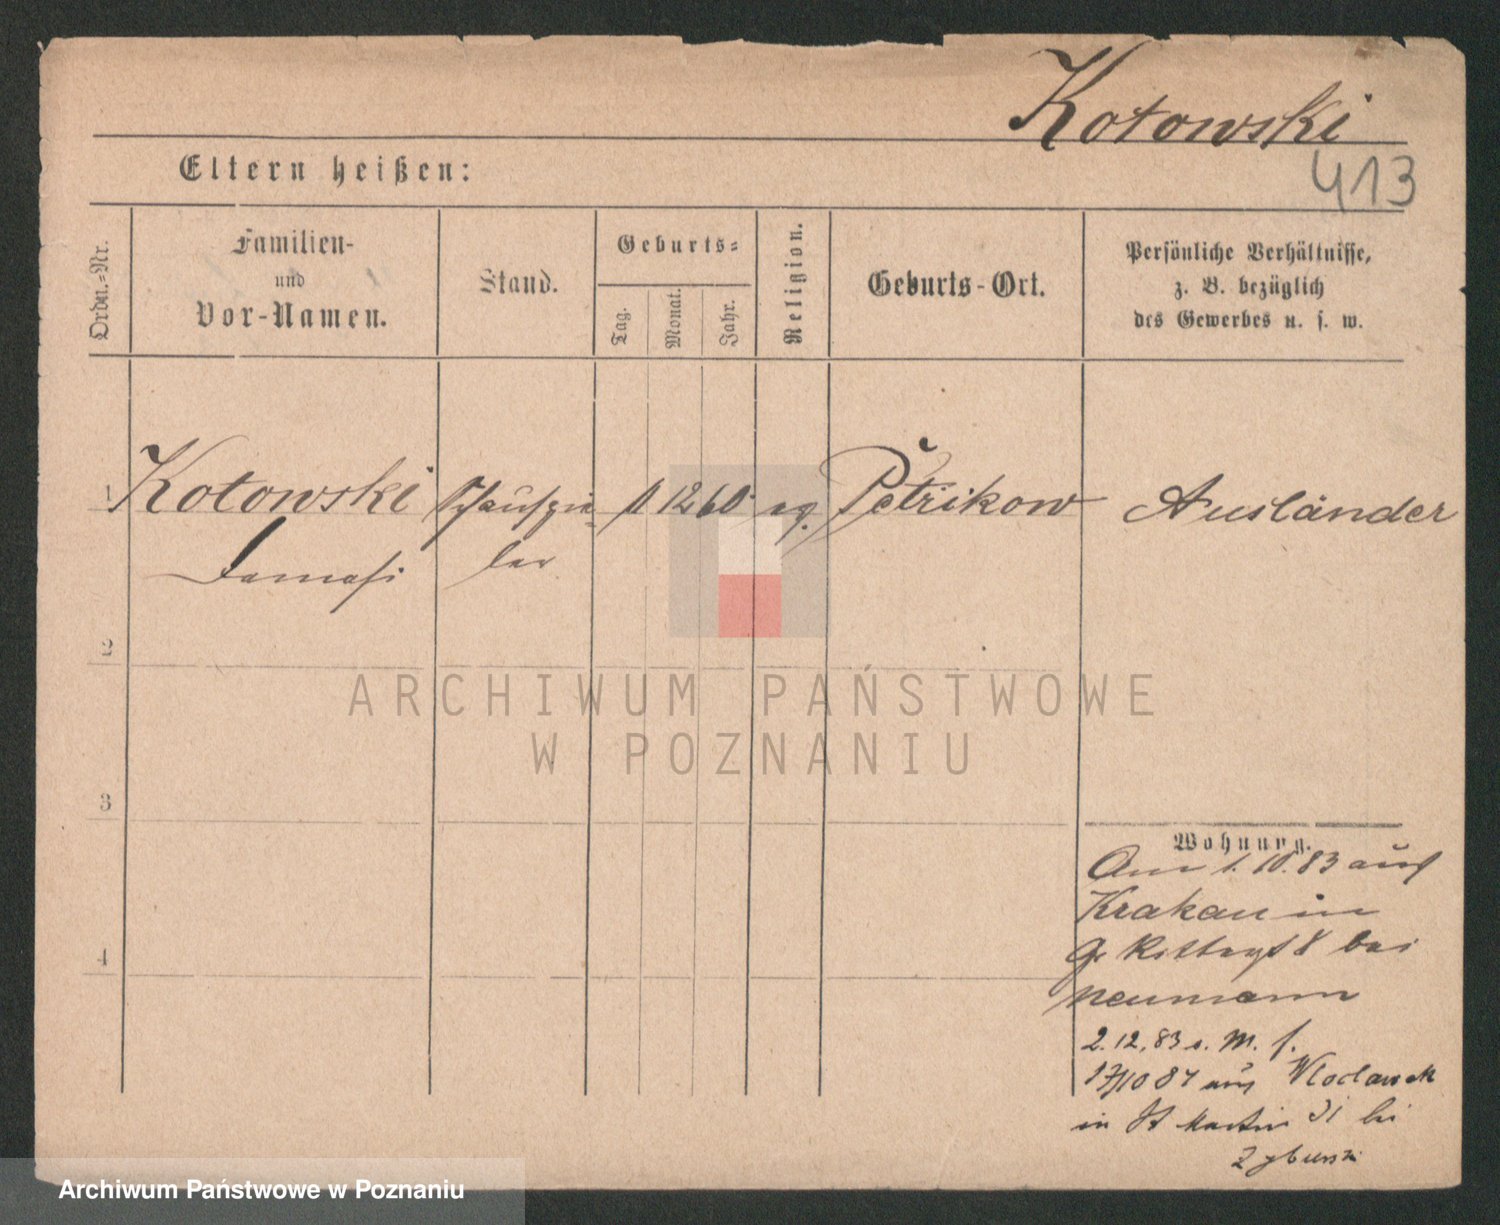 Kotowski
413
Eltern heißen:
Ordn.-Nr.
Familien-
und
Vor-Namen.
Stand.
Geburts-
Tag.
Monat.
Jahr.
Religion.
Geburts-Ort.
Persönliche Verhältnisse,
z. B. bezüglich
des Gewerbes u. s. w.
1
Kotowski
Schauspie-
12 60
Petrikow
Ausländer
Damasi
ler
2
ARCHIWUM PAŃSTWOWE
W POZNANIU
3
Wohnung.
Am 1. 10. 83 aus
Krakau in
Gr Rittergst 8 bei
Neumann
2. 12. 83 s. M. f.
17/10 84 aus Wloclawek
in St Martin 31 bei
4
Archiwum Państwowe w Poznaniu